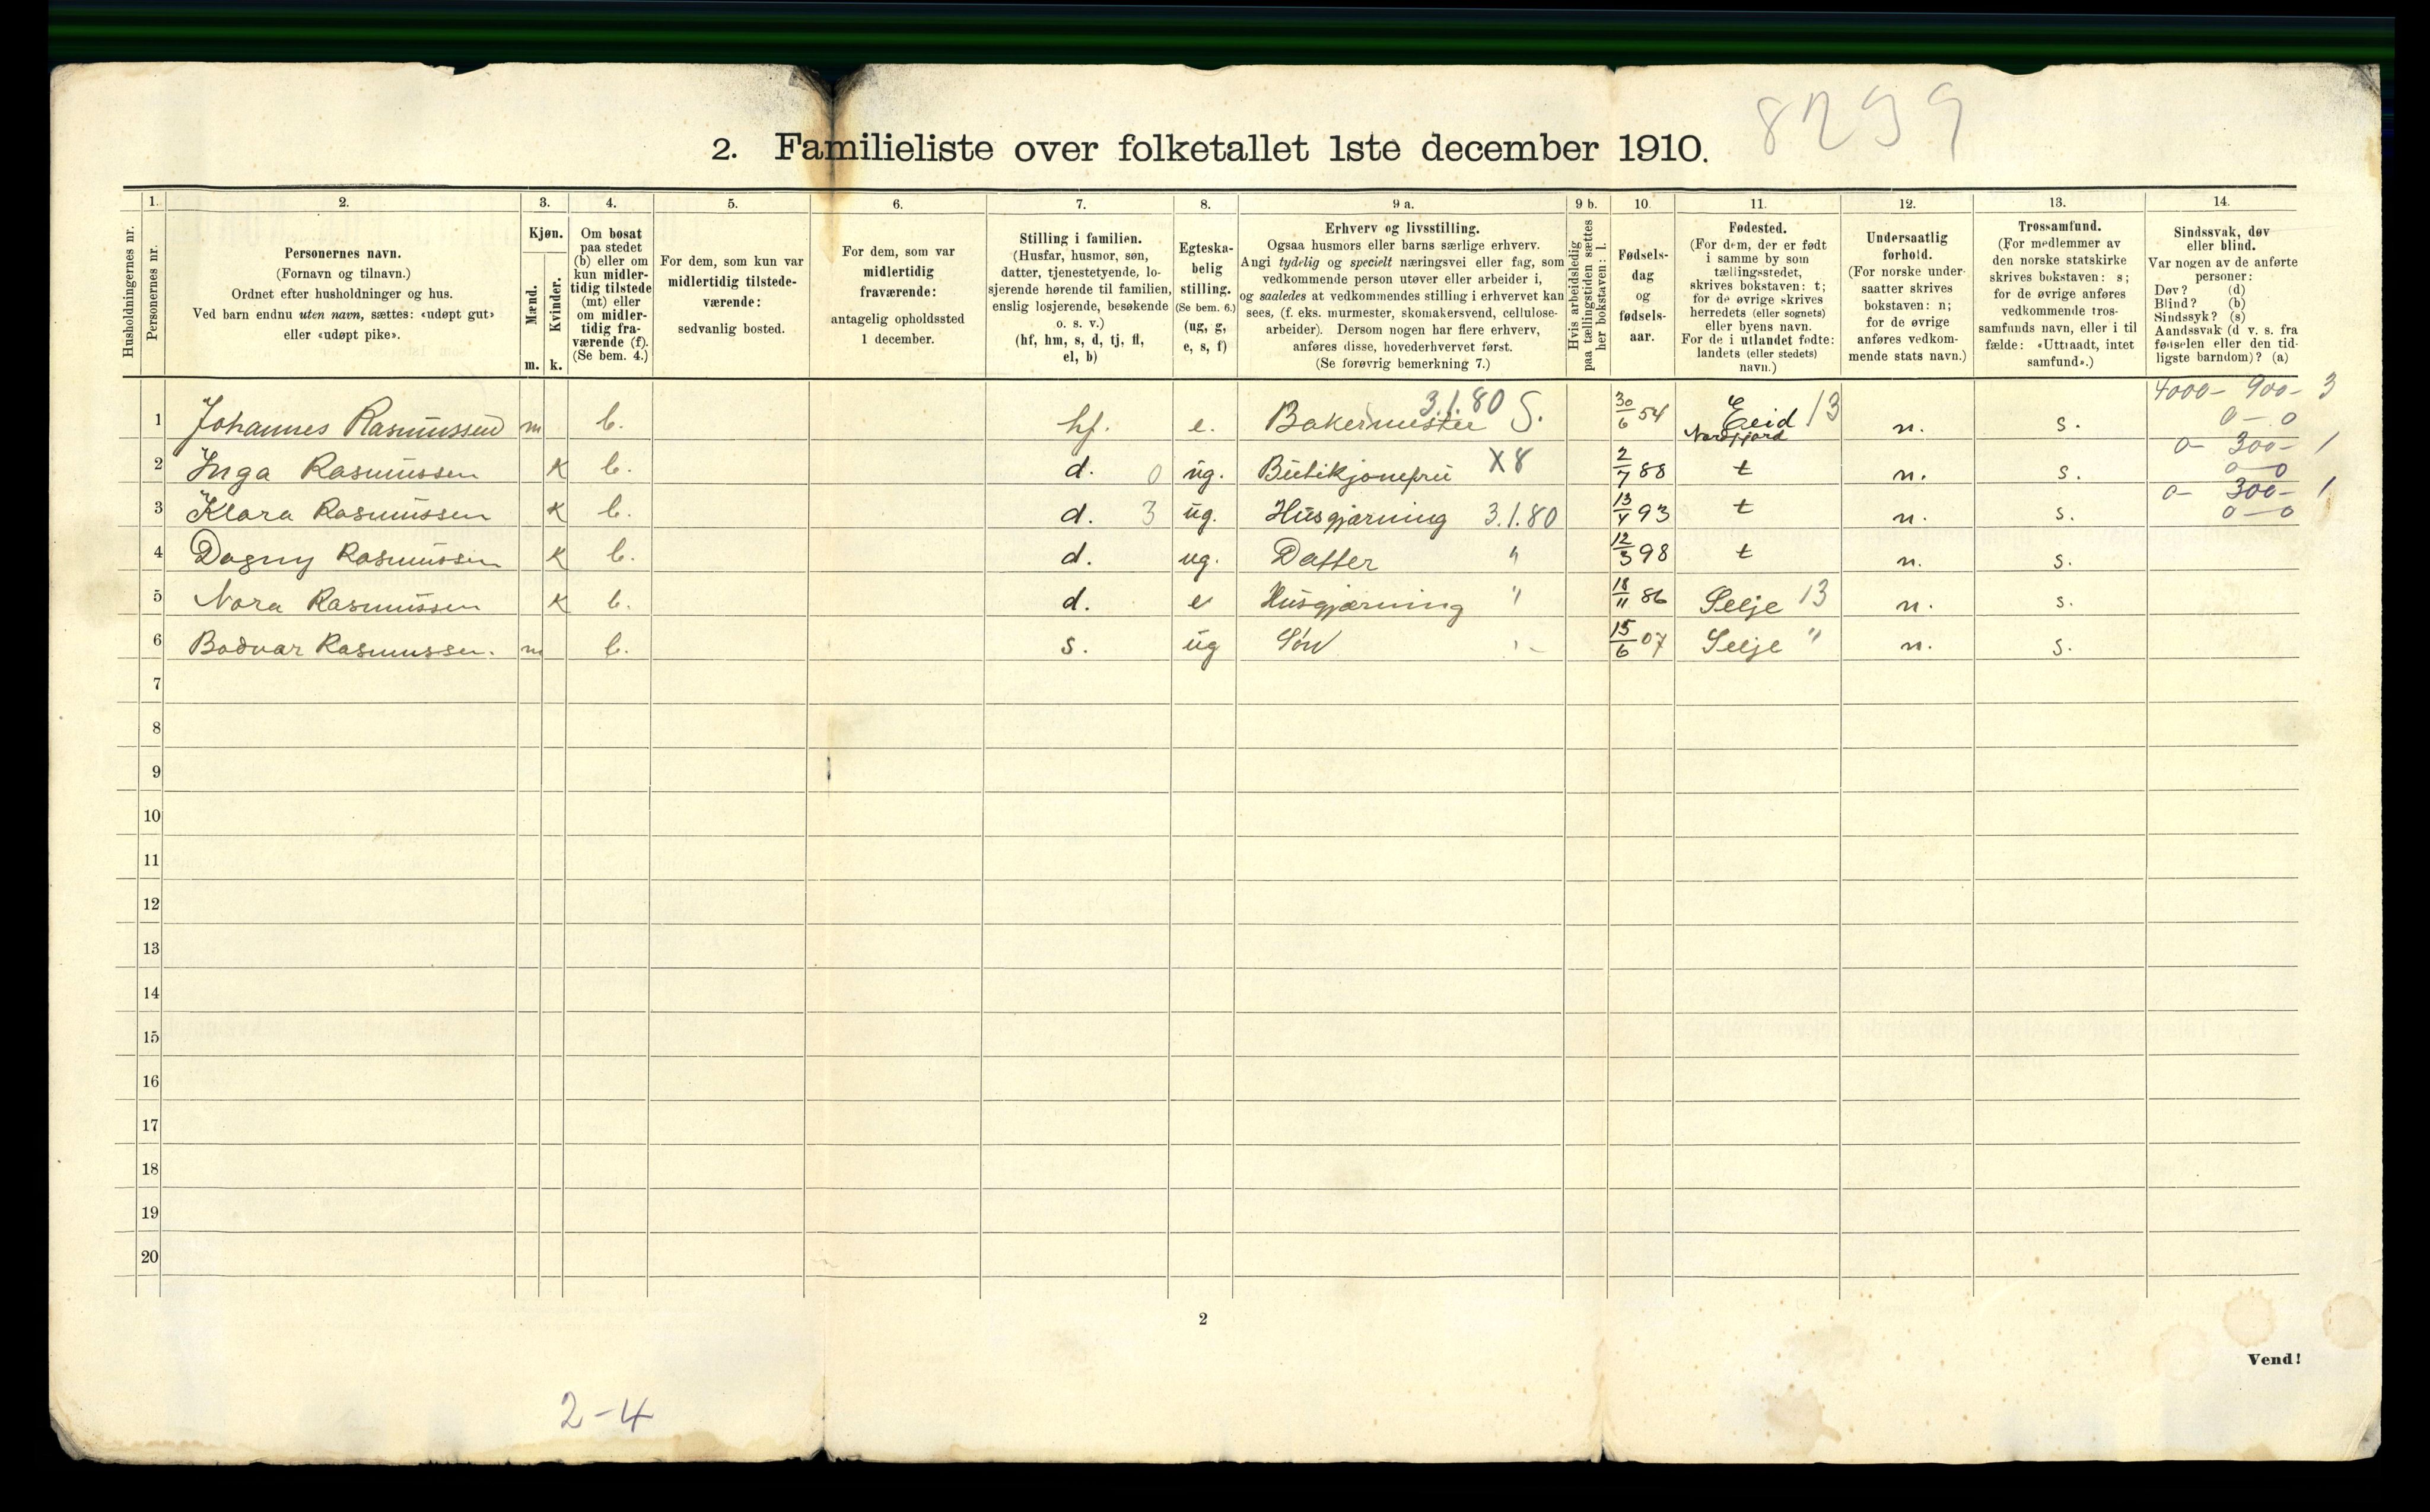 8299
2. Familieliste over folketallet 1ste december 1910.
Husholdningernes nr.
1.
Personernes nr.
2.
Personernes navn.
(Fornavn og tilnavn.)
Ordnet efter husholdninger og hus.
Ved barn endnu uten navn, sættes: «udøpt gut»
eller «udøpt pike».
3.
Kjøn.
Mænd.
Kvinder.
m. k.
4.
Om bosat
paa stedet
(b) eller om
kun midler-
tidig tilstede
(mt) eller
om midler-
tidig fra-
værende (f).
(Se bem. 4.)
5.
For dem, som kun var
midlertidig tilstede-
værende:
sedvanlig bosted.
6.
For dem, som var
midlertidig
fraværende:
antagelig opholdssted
1 december.
7.
Stilling i familien.
(Husfar, husmor, søn,
datter, tjenestetyende, lo-
sjerende hørende til familien,
enslig losjerende, besøkende
o. s. v.)
(hf, hm, s, d, tj, fl,
el, b)
8.
Egteska-
belig
stilling.
(Se bem. 6.)
(ug, g,
e, s, f)
9 a.
Erhverv og livsstilling.
Ogsaa husmors eller barns særlige erhverv.
Angi tydelig og specielt næringsvei eller fag, som
vedkommende person utøver eller arbeider i,
og saaledes at vedkommendes stilling i erhvervet kan
sees, (f. eks. murmester, skomakersvend, cellulose-
arbeider). Dersom nogen har flere erhverv,
anføres disse, hovederhvervet først.
(Se forøvrig bemerkning 7.)
9 b.
Hvis arbeidsledig
paa tællingstiden sættes
her bokstaven: l.
10.
Fødsels-
dag
og
fødsels-
aar.
11.
Fødested.
(For dem, der er født
i samme by som
tællingsstedet,
skrives bokstaven: t;
for de øvrige skrives
herredets (eller sognets)
eller byens navn.
For de i utlandet fødte:
landets (eller stedets)
navn.)
12.
Undersaatlig
forhold.
(For norske under-
saatter skrives
bokstaven: n;
for de øvrige
anføres vedkom-
mende stats navn.)
13.
Trossamfund.
(For medlemmer av
den norske statskirke
skrives bokstaven: s;
for de øvrige anføres
vedkommende tros-
samfunds navn, eller i til
fælde: «Uttraadt, intet
samfund».)
14.
Sindssvak, døv
eller blind.
Var nogen av de anførte
personer:
Døv? (d)
Blind? (b)
Sindssyk? (s)
Aandssvak (d v. s. fra
fødselen eller den tid-
ligste barndom)? (a)
3.1.80 4000- 900- 3
1 Johannes Rasmussen m b. hf. e. Bakermester S. 30/6 54 Eeid 13 n. s. 0-0
Nordfjord
0- 300- 1
2 Inga Rasmussen K b. d. 0 ug. Butikjomfru X8 2/7 88 t n. s. 0-0
0- 300- 1
3 Klara Rasmussen K b. d. 3 ug. Husgjærning 3.1.80 13/4 93 t n. s. 0-0
4 Dagny Rasmussen K b. d. ug. Datter " 12/3 98 t n. s.
5 Nora Rasmussen K b. d. e Husgjærning " 18/11 86 Selje 13 n. s.
6 Bodvar Rasmussen. m b. s. ug Søn "- 15/6 07 Selje " n. s.
7
8
9
10
11
12
13
14
15
16
17
18
19
20
2
Vend!
2-4